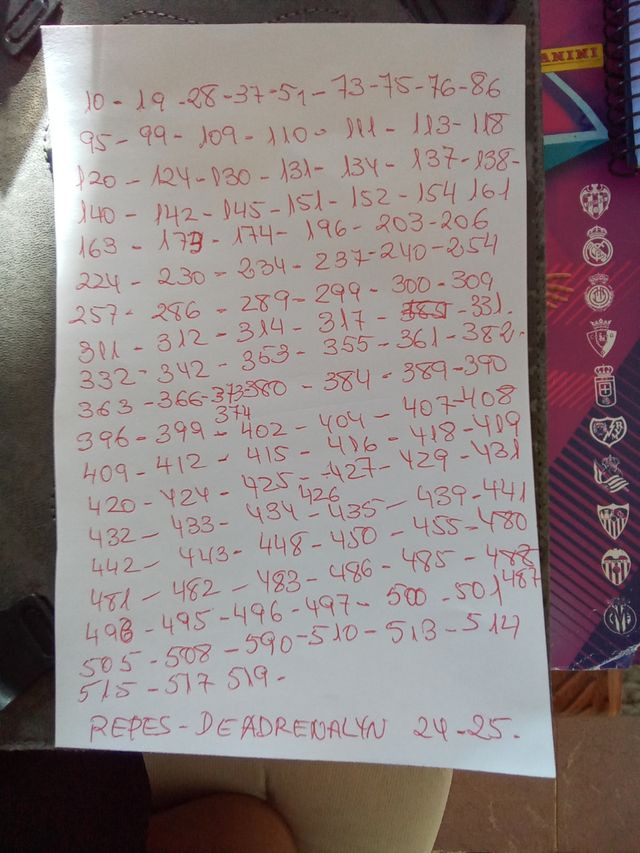 PANINI
10 - 19 - 28 - 37 - 51 - 73 - 75 - 76 - 86
95 - 99 - 109 - 110 - 111 - 113 - 118
120 - 124 - 130 - 131 - 134 - 137 - 138 -
140 - 142 - 145 - 151 - 152 - 154 161
163 - 173 - 174 - 196 - 203 - 206
224 - 230 - 234 - 237 - 240 - 254
257 - 286 - 289 - 299 - 300 - 309
311 - 312 - 314 - 317 - - 331.
332 - 342 - 353 - 355 - 361 - 382 -
363 - 366 - 373 - 380 - 384 - 389 - 390
374
396 - 399 - 402 - 404 - 407 - 408
409 - 412 - 415 - 416 - 418 - 419
420 - 424 - 425 - 427 - 429 - 431
426
432 - 433 - 434 - 435 - 439 - 441
442 - 443 - 448 - 450 - 455 - 480
481 - 482 - 483 - 486 - 485 - 488
487
493 - 495 - 496 - 497 - 500 - 501
505 - 508 - 590 - 510 - 513 - 514
515 - 517 519 -
REPES - DE ADRENALYN 24 - 25.